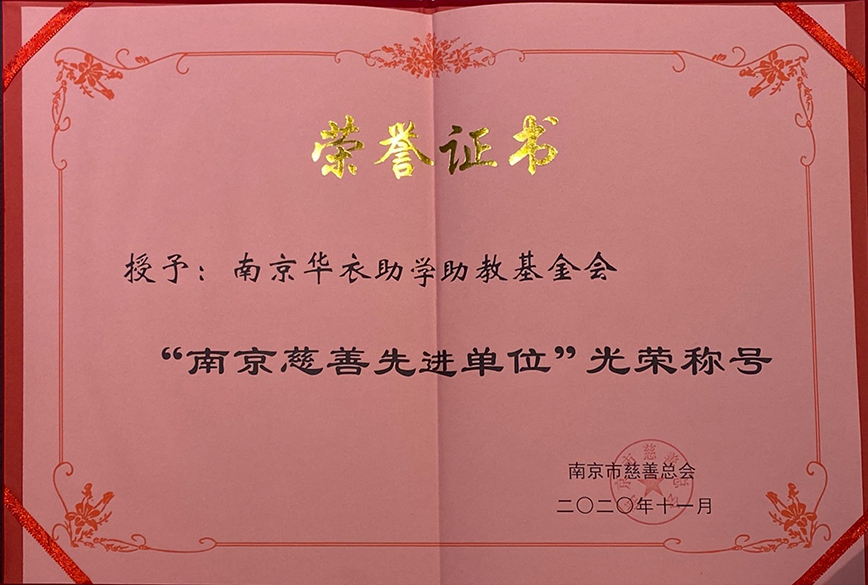 荣誉证书
授予：南京华衣助学助教基金会
“南京慈善先进单位”光荣称号
南京市慈善总会
二〇二〇年十一月